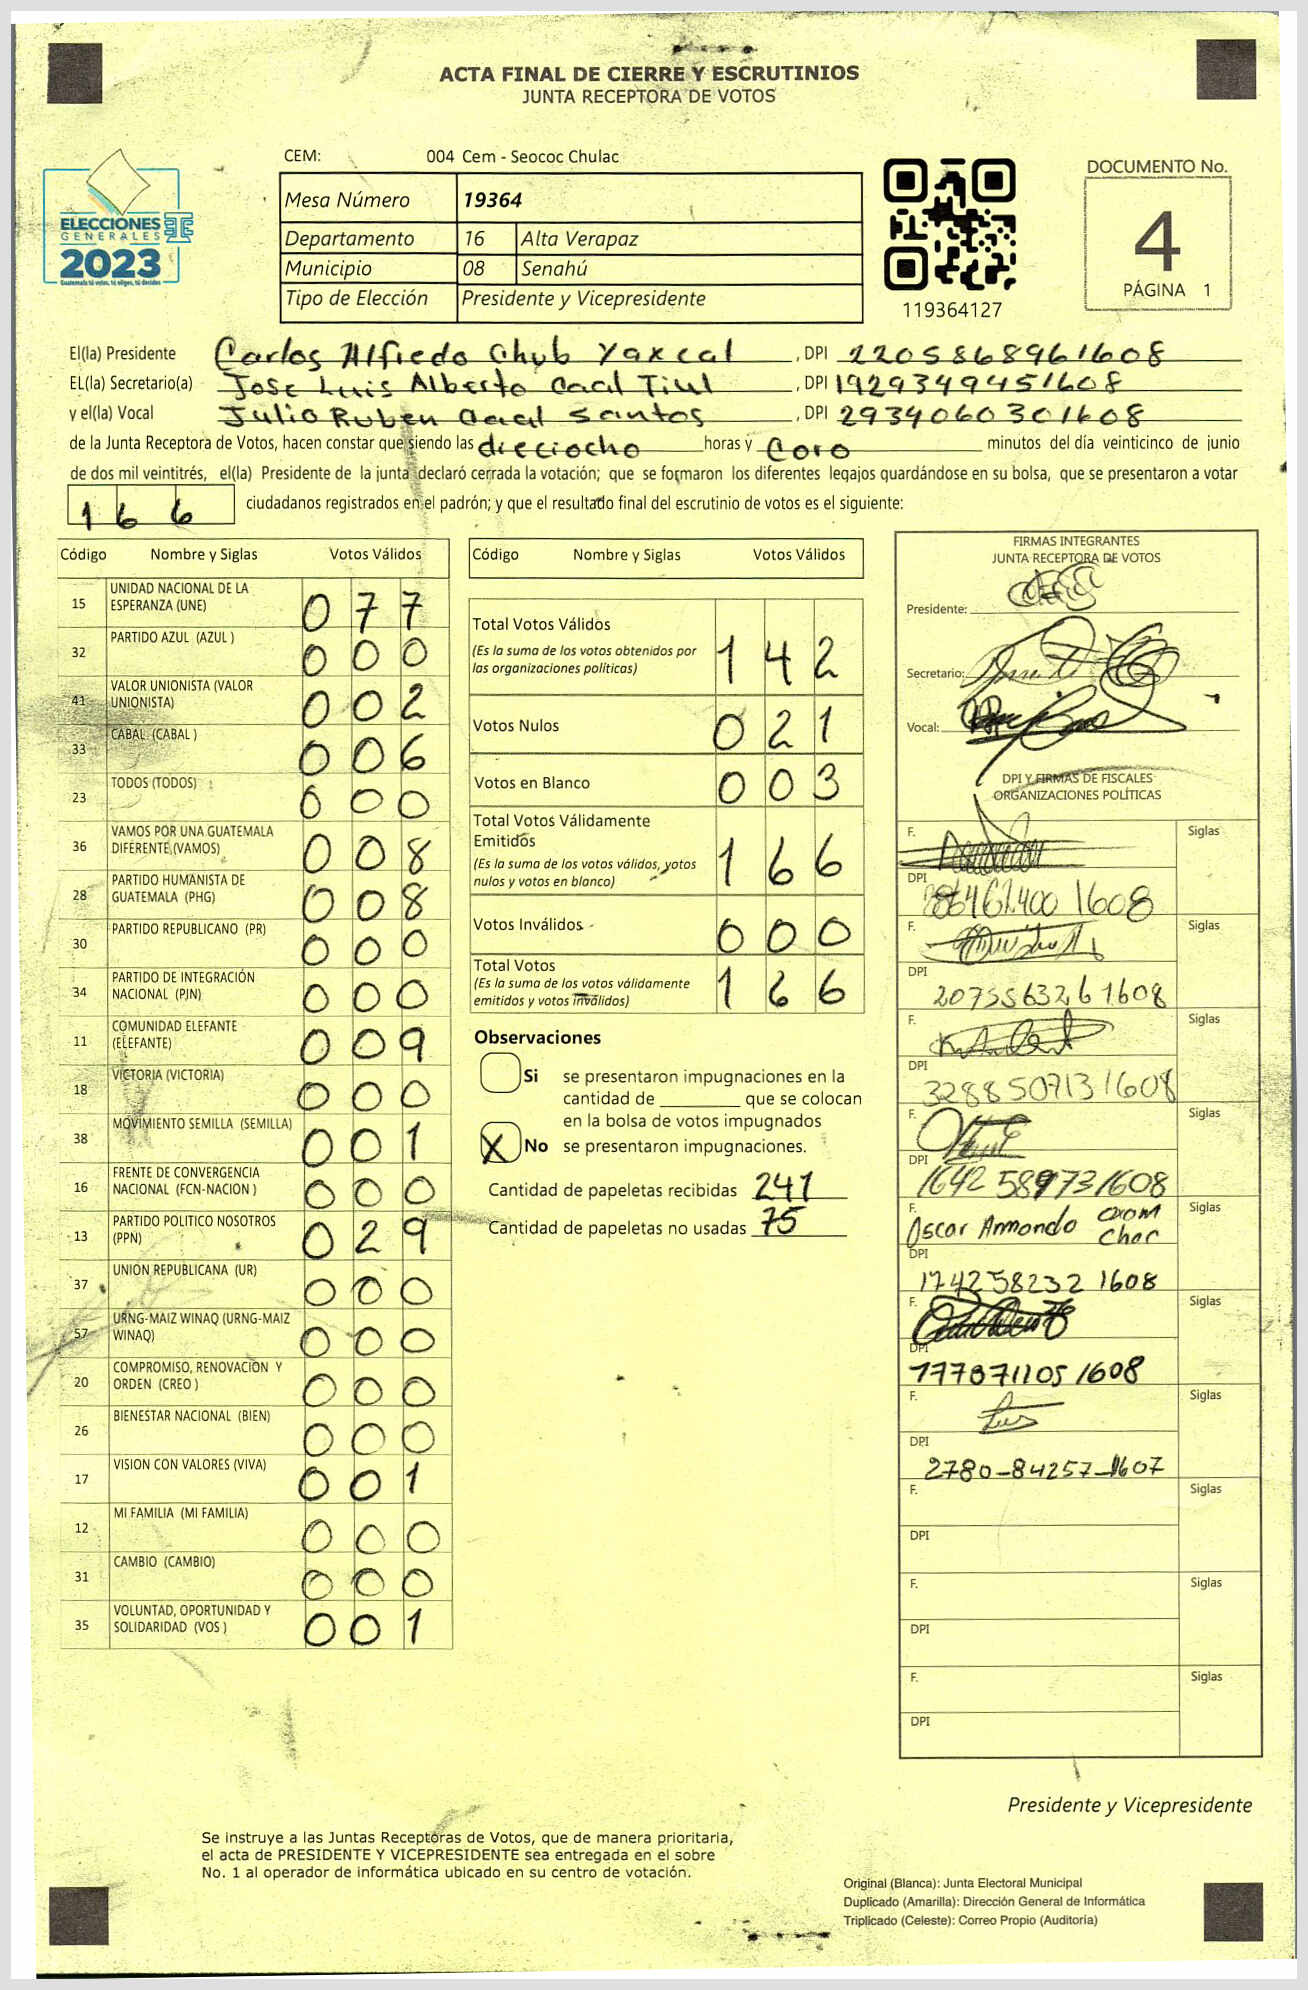 ACTA FINAL DE CIERRE Y ESCRUTINIOS
JUNTA RECEPTORA DE VOTOS
CEM: 004 Cem - Seococ Chulac
DOCUMENTO No.
4
PÁGINA 1
ELECCIONES
GENERALES
2023
Guatemala tú votas, tú eliges, tú decides
Mesa Número 19364
Departamento 16 Alta Verapaz
Municipio 08 Senahú
Tipo de Elección Presidente y Vicepresidente
119364127
El(la) Presidente Carlos Alfredo Chub Yaxcal , DPI 2205868961608
EL(la) Secretario(a) Jose Luis Alberto Caal Tiul , DPI 1929349451608
y el(la) Vocal Julio Ruben Caal Santos , DPI 2934060301608
de la Junta Receptora de Votos, hacen constar que siendo las dieciocho horas y Coro minutos del día veinticinco de junio
de dos mil veintitrés, el(la) Presidente de la junta declaró cerrada la votación; que se formaron los diferentes legajos quardándose en su bolsa, que se presentaron a votar
166 ciudadanos registrados en el padrón; y que el resultado final del escrutinio de votos es el siguiente:
Código Nombre y Siglas Votos Válidos
15 UNIDAD NACIONAL DE LA
ESPERANZA (UNE) 077
32 PARTIDO AZUL (AZUL ) 000
41 VALOR UNIONISTA (VALOR
UNIONISTA) 002
33 CABAL (CABAL ) 006
23 TODOS (TODOS) 000
36 VAMOS POR UNA GUATEMALA
DIFERENTE (VAMOS) 008
28 PARTIDO HUMANISTA DE
GUATEMALA (PHG) 008
30 PARTIDO REPUBLICANO (PR) 000
34 PARTIDO DE INTEGRACIÓN
NACIONAL (PIN) 000
11 COMUNIDAD ELEFANTE
(ELEFANTE) 009
18 VICTORIA (VICTORIA) 000
38 MOVIMIENTO SEMILLA (SEMILLA) 001
16 FRENTE DE CONVERGENCIA
NACIONAL (FCN-NACION ) 000
13 PARTIDO POLITICO NOSOTROS
(PPN) 029
37 UNION REPUBLICANA (UR) 000
57 URNG-MAIZ WINAQ (URNG-MAIZ
WINAQ) 000
20 COMPROMISO, RENOVACION Y
ORDEN (CREO ) 000
26 BIENESTAR NACIONAL (BIEN) 000
17 VISION CON VALORES (VIVA) 001
12 MI FAMILIA (MI FAMILIA) 000
31 CAMBIO (CAMBIO) 000
35 VOLUNTAD, OPORTUNIDAD Y
SOLIDARIDAD (VOS ) 001
Código Nombre y Siglas Votos Válidos
Total Votos Válidos
(Es la suma de los votos obtenidos por
las organizaciones políticas) 142
Votos Nulos 021
Votos en Blanco 003
Total Votos Válidamente
Emitidos
(Es la suma de los votos válidos, votos
nulos y votos en blanco) 166
Votos Inválidos 000
Total Votos
(Es la suma de los votos válidamente
emitidos y votos inválidos) 166
Observaciones
Si se presentaron impugnaciones en la
cantidad de ________ que se colocan
en la bolsa de votos impugnados
X No se presentaron impugnaciones.
Cantidad de papeletas recibidas 241
Cantidad de papeletas no usadas 75
FIRMAS INTEGRANTES
JUNTA RECEPTORA DE VOTOS
Presidente:
Secretario:
Vocal:
DPI Y FIRMAS DE FISCALES
ORGANIZACIONES POLÍTICAS
F. Siglas
DPI
F. Siglas
DPI
2075563261608
F. Siglas
DPI
3288507131608
F. Siglas
DPI
1642589731608
F. Siglas
Oscar Armando Choc
DPI
1742582321608
F. Siglas
DPI
1778711051608
F. Siglas
DPI
2780-84257-1607
F. Siglas
DPI
F. Siglas
DPI
F. Siglas
DPI
Presidente y Vicepresidente
Se instruye a las Juntas Receptoras de Votos, que de manera prioritaria,
el acta de PRESIDENTE Y VICEPRESIDENTE sea entregada en el sobre
No. 1 al operador de informática ubicado en su centro de votación.
Original (Blanca): Junta Electoral Municipal
Duplicado (Amarilla): Dirección General de Informática
Triplicado (Celeste): Correo Propio (Auditoría)